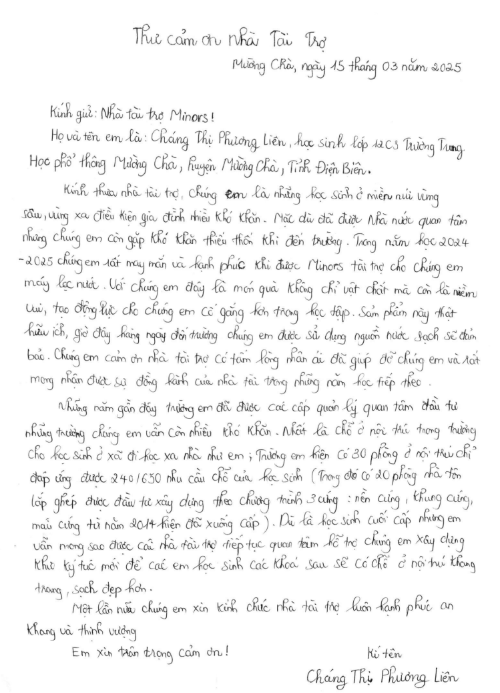 Thư cảm ơn nhà Tài Trợ
Mường Chà, ngày 15 tháng 03 năm 2025
Kính gửi: Nhà tài trợ Minors!
Họ và tên em là: Cháng Thị Phương Liên, học sinh lớp 12C3 Trường Trung
Học phổ thông Mường Chà, huyện Mường Chà, Tỉnh Điện Biên.
Kính thưa nhà tài trợ, chúng em là những học sinh ở miền núi vùng
sâu, vùng xa điều kiện gia đình nhiều khó khăn. Mặc dù đã được Nhà nước quan tâm
nhưng chúng em còn gặp khó khăn thiếu thốn khi đến trường. Trong năm học 2024
-2025 chúng em rất may mắn và hạnh phúc khi được Minors tài trợ cho chúng em
máy lọc nước. Với chúng em đây là món quà không chỉ vật chất mà còn là niềm
vui, tạo động lực cho chúng em cố gắng hơn trong học tập. Sản phẩm này thật
hữu ích, giờ đây hàng ngày đến trường chúng em được sử dụng nguồn nước sạch sẽ đảm
bảo. Chúng em cảm ơn nhà tài trợ có tấm lòng nhân ái đã giúp đỡ chúng em và rất
mong nhận được sự đồng hành của nhà tài trong những năm học tiếp theo.
Những năm gần đây trường em đã được các cấp quản lý quan tâm đầu tư
nhưng trường chúng em vẫn còn nhiều khó khăn. Nhất là chỗ ở nội trú trong trường
cho học sinh ở xã đi học xa nhà như em; Trường em hiện có 30 phòng ở nội trú chỉ
đáp ứng được 240/650 nhu cầu chỗ của học sinh (Trong đó có 20 phòng nhà tôn
lắp ghép được đầu tư xây dựng theo chương trình 3 cứng: nền cứng, khung cứng,
mái cứng từ năm 2014 hiện đã xuống cấp). Dù là học sinh cuối cấp nhưng em
vẫn mong sao được các nhà tài trợ tiếp tục quan tâm hỗ trợ chúng em xây dựng
khu ký túc mới để các em học sinh các khoá sau sẽ có chỗ ở nội trú khang
trang, sạch đẹp hơn.
Một lần nữa chúng em xin kính chúc nhà tài trợ luôn hạnh phúc an
khang và thịnh vượng
Em xin trân trọng cảm ơn!
Kí tên
Cháng Thị Phương Liên